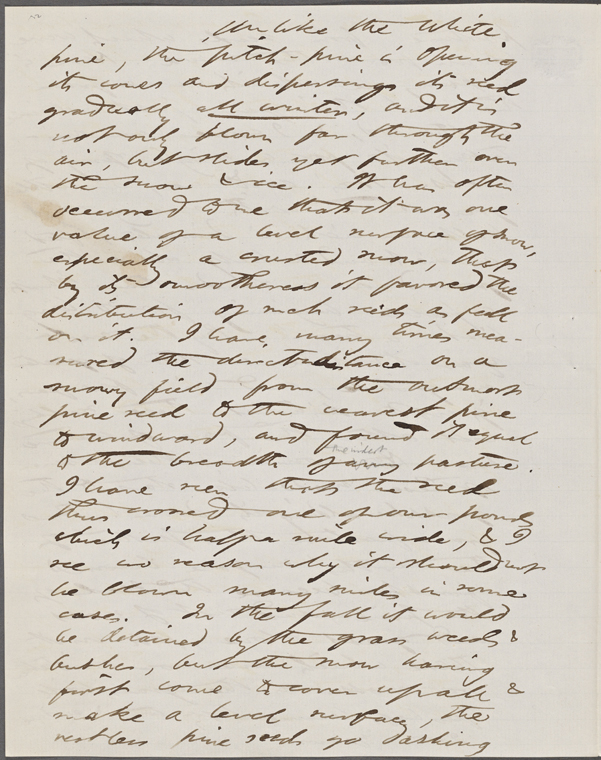 Unlike the White
pine, the pitch-pine is opening
its cones and dispersing its seed
gradually all winter, and it is
not only blown far through the
air, but slides yet further over
the snow & ice. It has often
occurred to me that it was one
value of a level surface of snow,
especially a crusted snow, that
by its smoothness it favored the
distribution of such seeds as fell
on it. I have many times mea-
sured the direct distance on a
snowy field from the outmost
pine seed to the nearest pine
to windward, and found it equal
the widest
to the breadth of any pasture.
I have seen that the seed
thus crossed one of our ponds
which is half a mile wide, & I
see no reason why it should not
be blown many miles in some
cases. In the fall it would
be detained by the grass weeds &
bushes, but the snow having
first come & cover up all &
make a level surface, the
restless pine seeds go dashing